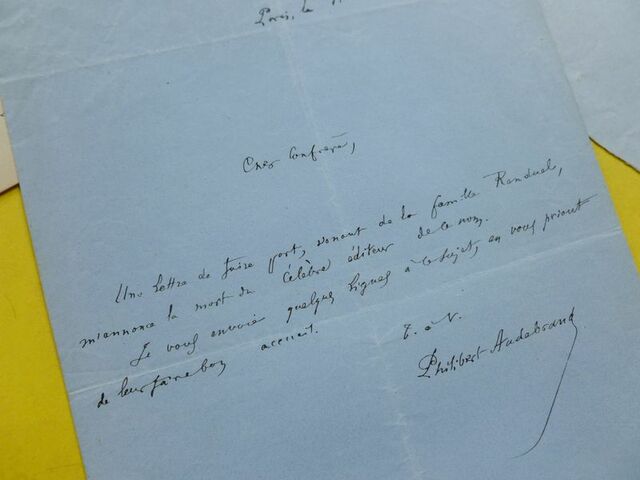 Paris, le
Cher Confrère,
Une lettre de faire part, venant de la famille Renduel,
m'annonce la mort du célèbre éditeur de ce nom.
Je vous envoie quelques lignes à ce sujet, en vous priant
de leur faire bon accueil.
T. à V.
Philibert Audebrand